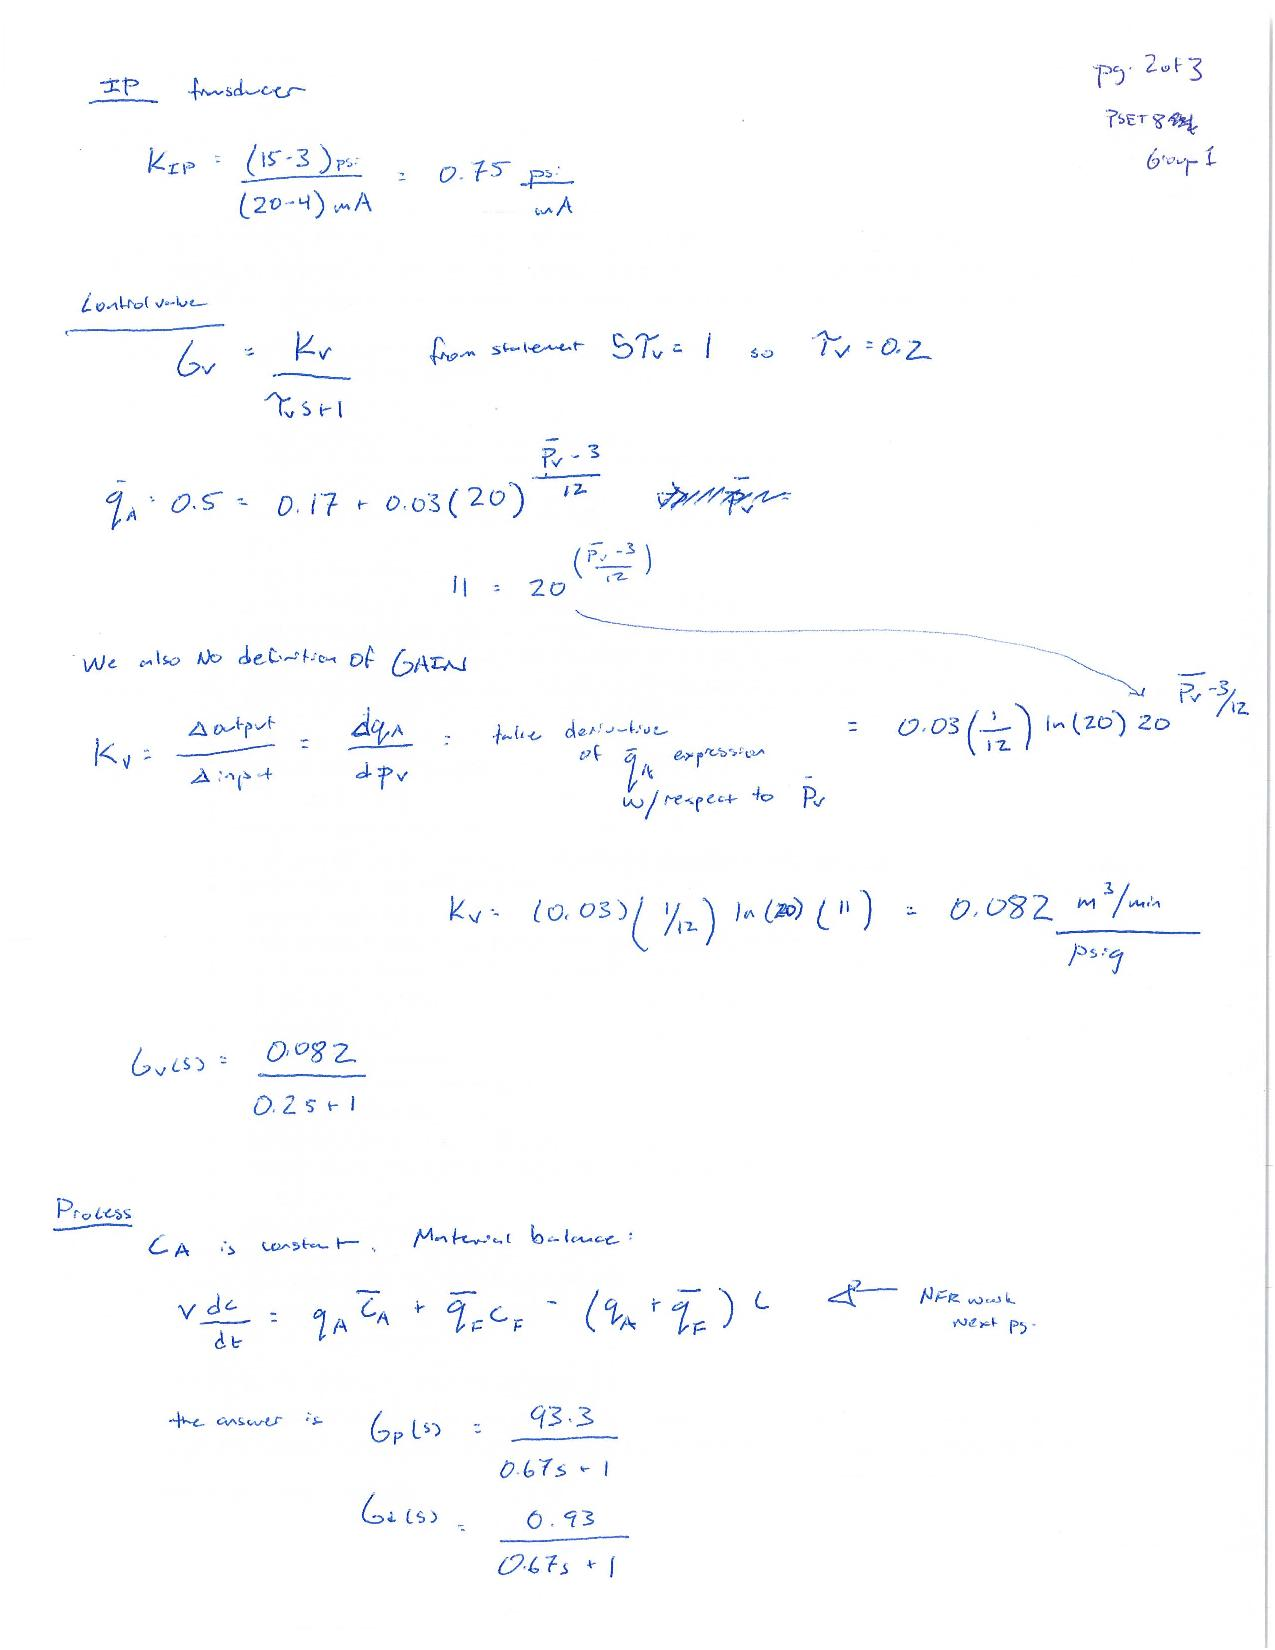 IP transducer
pg. 2 of 3
PSET 8
Group 1
K_IP = (15-3) psi / (20-4) mA = 0.75 psi / mA
Control valve
G_v = K_v / τ_v s+1 from statement 5τ_v = 1 so τ_v = 0.2
q̄_A = 0.5 = 0.17 + 0.03(20)^(P̄_v - 3 / 12)
11 = 20^(P̄_v - 3 / 12)
We also No definition of GAIN
K_v = Δ output / Δ input = dq_A / dp_v = take derivative of q̄_A expression w/respect to P̄_v = 0.03 (1/12) ln(20) 20^(P̄_v - 3/12)
K_v = (0.03)(1/12) ln(20) (11) = 0.082 m³/min / psig
G_v(s) = 0.082 / 0.2s+1
Process
C_A is constant. Material balance:
V dc/dt = q_A C̄_A + q̄_F C_F - (q_A + q̄_F) C ← NFR work
Next pg.
the answer is G_p(s) = 93.3 / 0.67s + 1
G_d(s) = 0.93 / 0.67s + 1